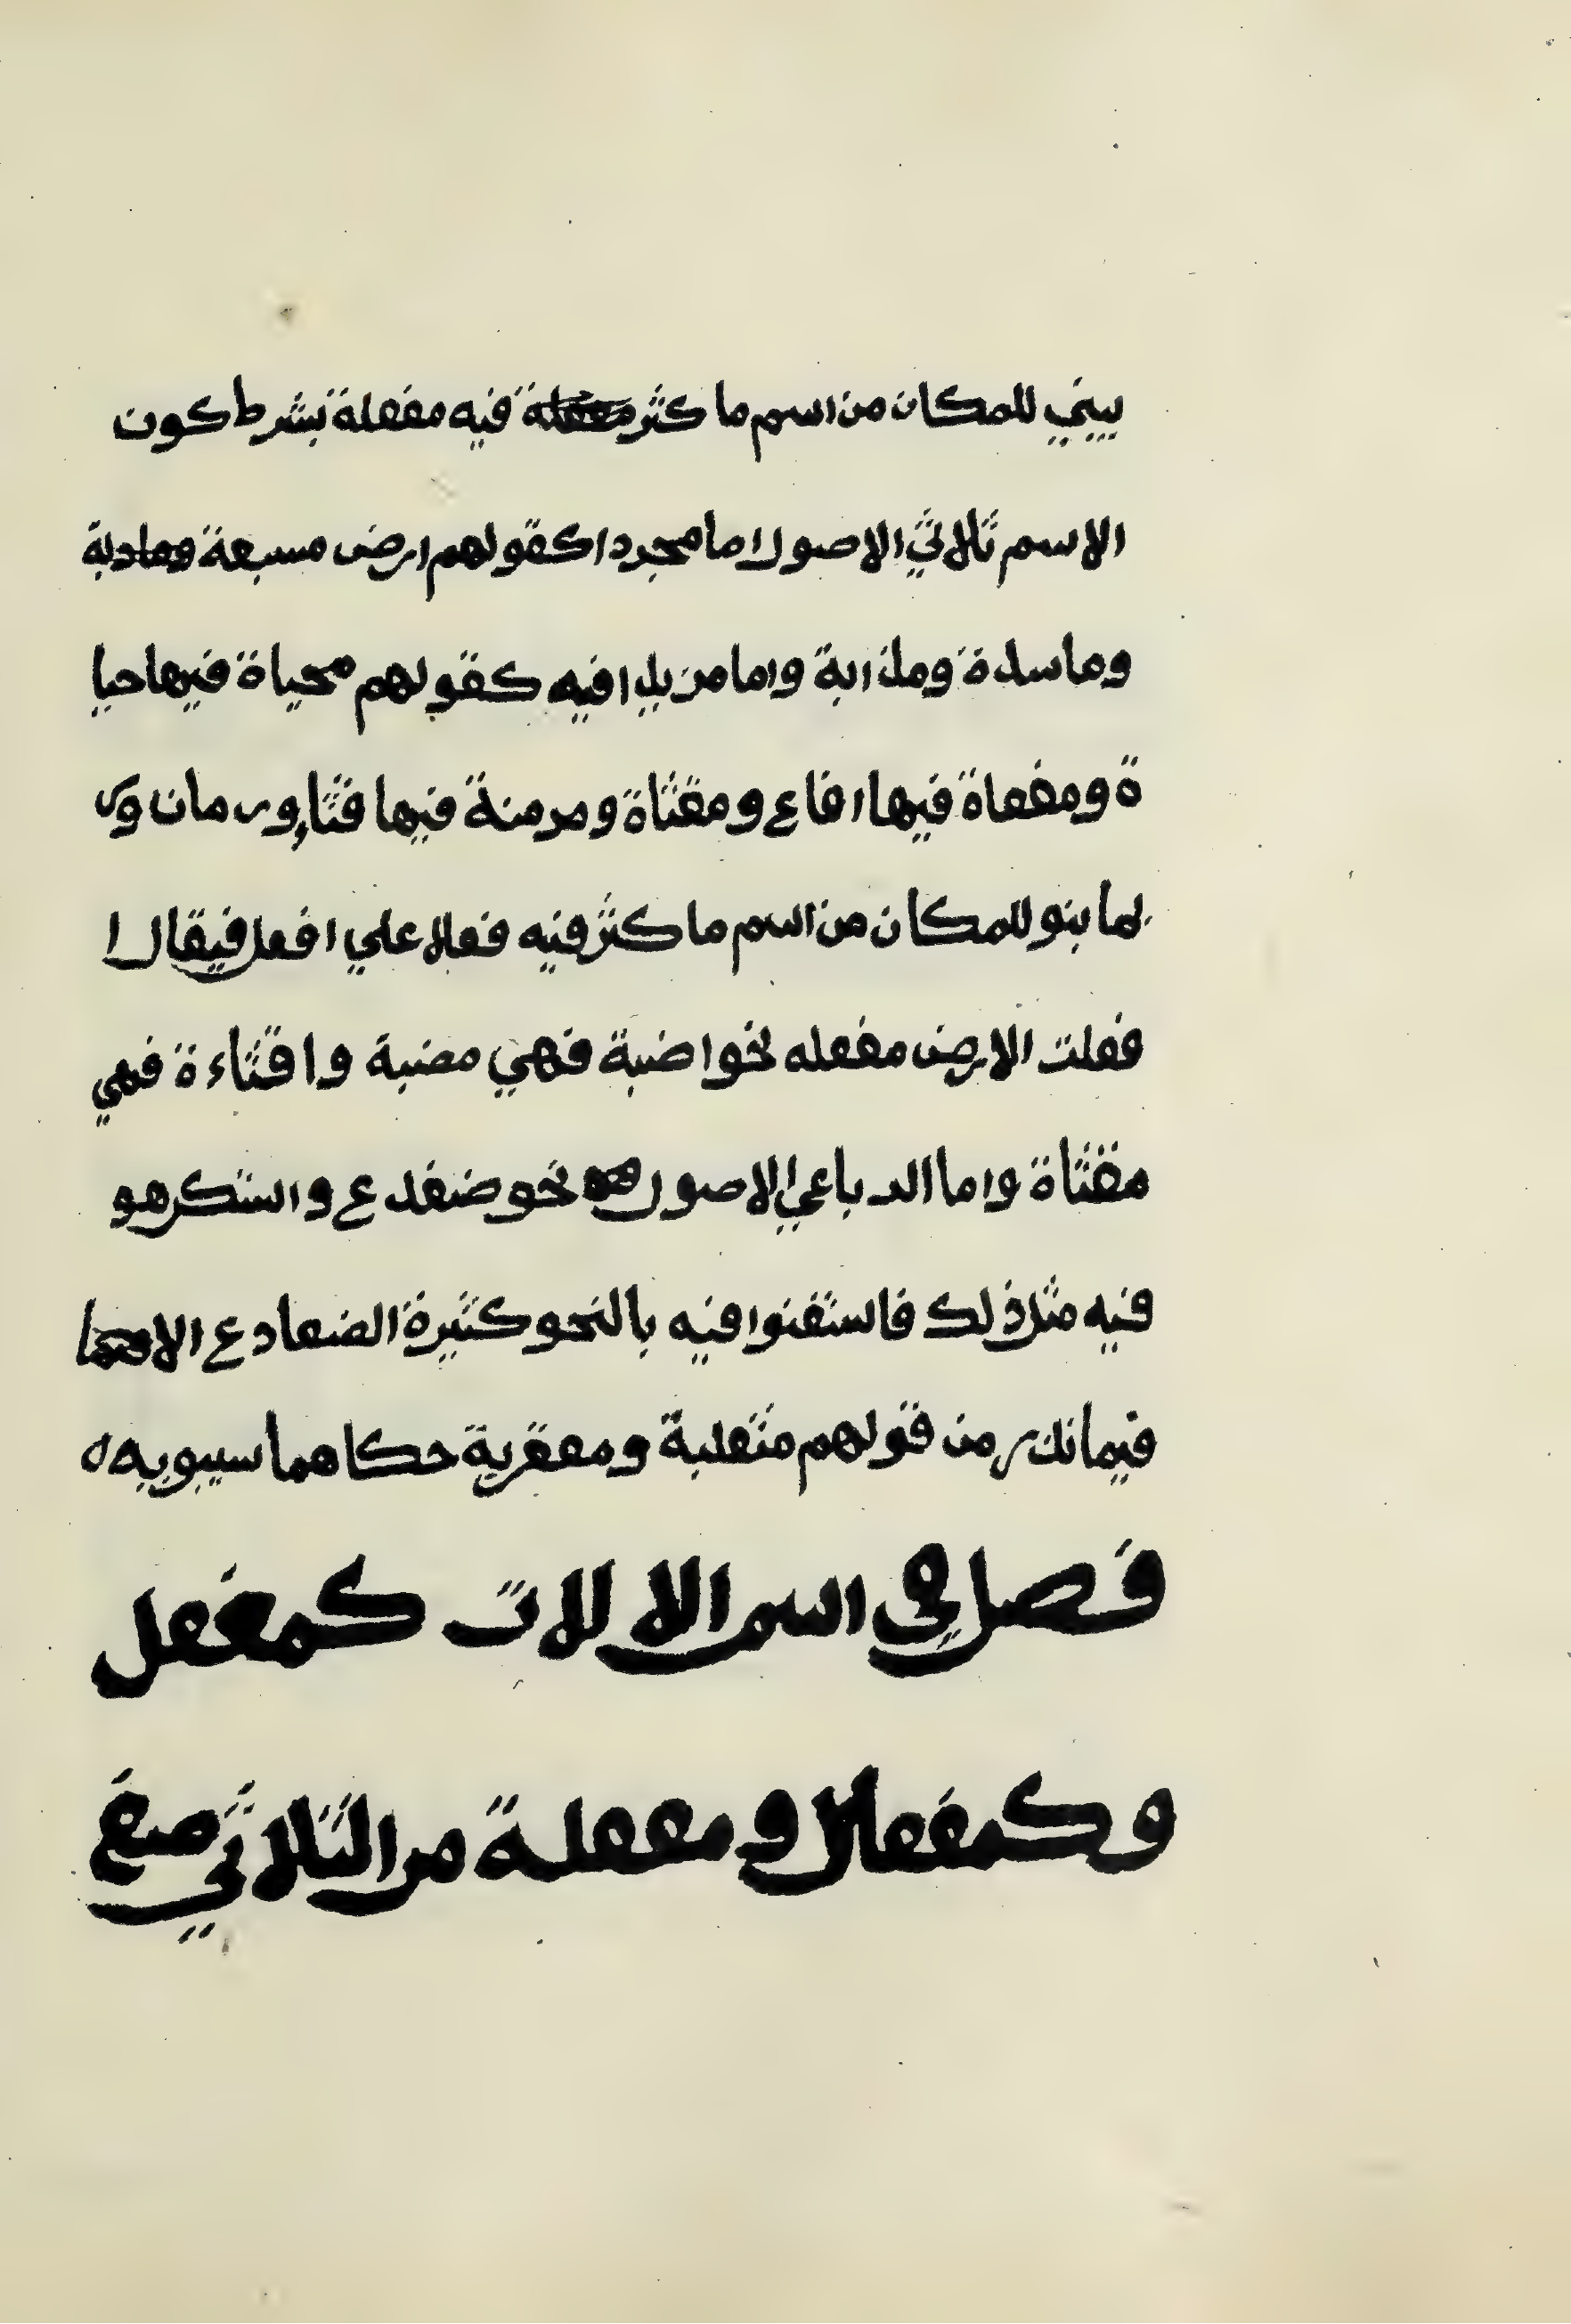 يبني للمكان من اسم ما كثر فيه مفعلة بشرط كون
الاسم ثلاثي الاصول اما مجردا كقولهم ارض مسبعة
وماسدة ومذابة واما مزيدا فيه كقولهم محياة فيها حيا
ة ومفعاة فيها افاع ومقثاة ومرمنة فيها قثاء ورمان ور
بما بنو للمكان من اسم ما كثر فيه فعلا علي افعل فيقال ا
فعلت الارض مفعله نحو اضبة فهي مضبة واقثاءة فهي
مقثاة واما الرباعي الاصول نحو ضفدع واستكرهو
فيه مثل ذلك فاستغنوا فيه بالنحو كثيرة الضفادع الا
فيما نذر من قولهم مثعلبة ومعقربة حكاهما سيبويه ه
فصل في اسم الالات كمفعل
وكمفعال ومفعلة من الثلاثي صغ